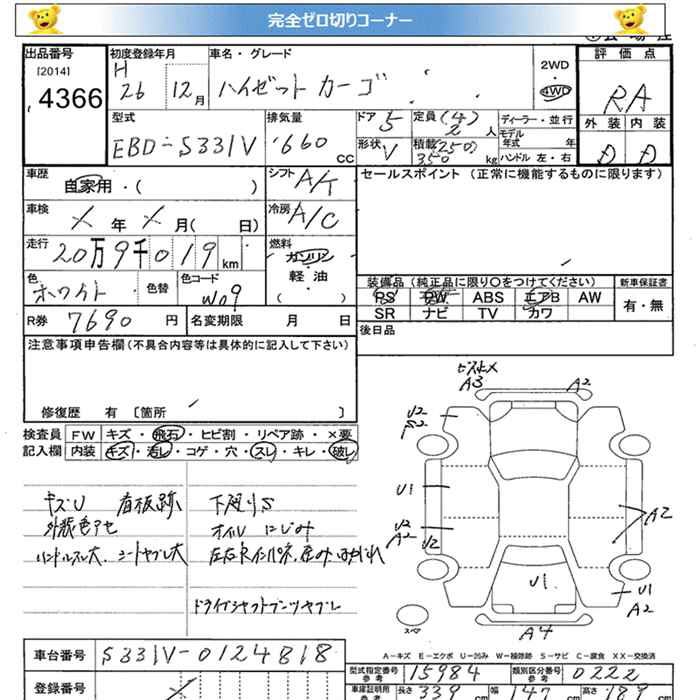 完全ゼロ切りコーナー
出品番号
[2014]
4366
初度登録年月
H
26 12月
車名・グレード
ハイゼット カーゴ
2WD
4WD
評価点
RA
外装 内装
D D
型式
EBD-S331V
排気量
660 CC
ドア 5
形状 V
定員 (4)
2 人
積載 (250)
350 kg
ディーラー・並行
モデル年式 年
ハンドル 左・右
車歴
自家用・( )
シフト A/T
車検
X 年 X 月( 日)
冷房 A/C
走行
20万9千019km
燃料
ガソリン
軽・油
( )
色
ホワイト
色替
色コード
W09
R券 7690 円
名変期限 月 日
セールスポイント (正常に機能するものに限ります)
装備品 (純正品に限り〇をつけてください)
PS PW ABS エアB AW
SR ナビ TV カワ
新車保証書
有・無
後日品
注意事項申告欄(不具合内容等は具体的に記入して下さい)
修復歴 有 〔箇所 〕
検査員
記入欄
FW キズ・飛石・ヒビ割・リペア跡・×要
内装 キズ・汚レ・コゲ・穴・スレ・キレ・破レ
キズU 看板跡
外装色アセ
ハンドルスレ大、シートヤブレ大
下廻りS
オイルにじみ
ドライブシャフトブーツヤブレ
A3 A2
U2
U1
U2
A2 U2
A2
U1
U1
A2
A4
スペア
A-キズ E-エクボ U-凹み W-補修跡 S-サビ C-腐食 XX-交換済
車台番号 S331V-0124818
登録番号
型式指定番号
参考
15984
類別区分番号
参考
0222
車庫証明用
参考
長さ 339 cm 幅 147 cm